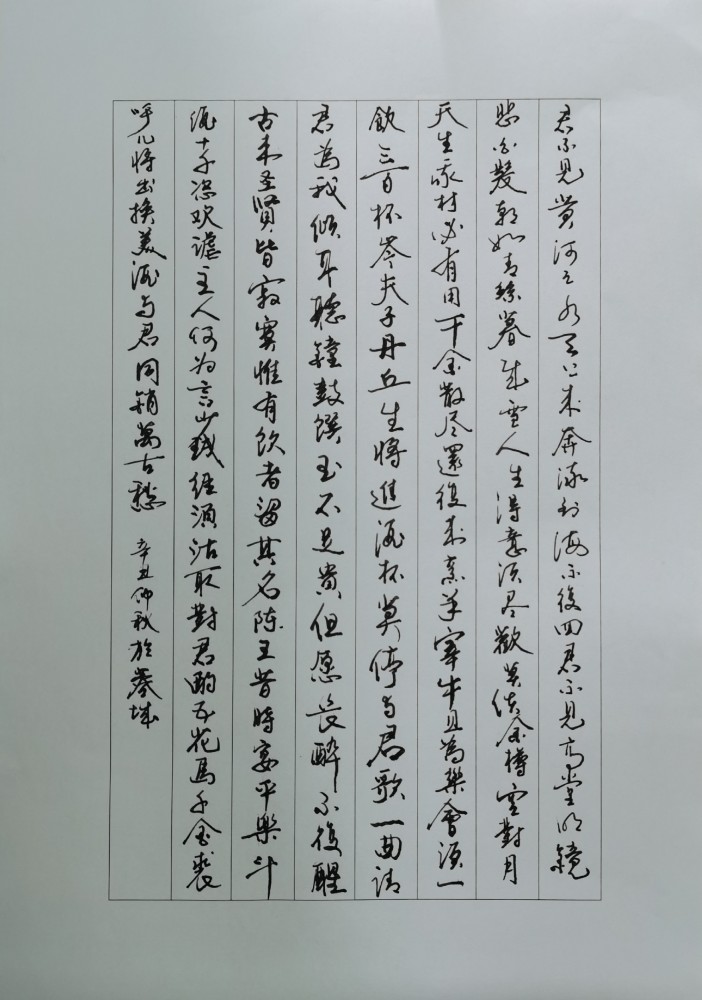 君不见黄河之水天上来奔流到海不復回君不见高堂明鏡
悲白髮朝如青絲暮成雪人生得意须尽歡莫使金樽空對月
天生我材必有用千金散尽還復来烹羊宰牛且為樂會须一
飲三百杯岑夫子丹丘生將進酒杯莫停与君歌一曲请
君為我傾耳聽鐘鼓饌玉不足貴但愿長醉不復醒
古来圣賢皆寂寞惟有飲者留其名陈王昔時宴平樂斗
酒十千恣欢謔主人何为言少錢径须沽取對君酌五花馬千金裘
呼儿將出换美酒与君同銷萬古愁 辛丑仲秋於